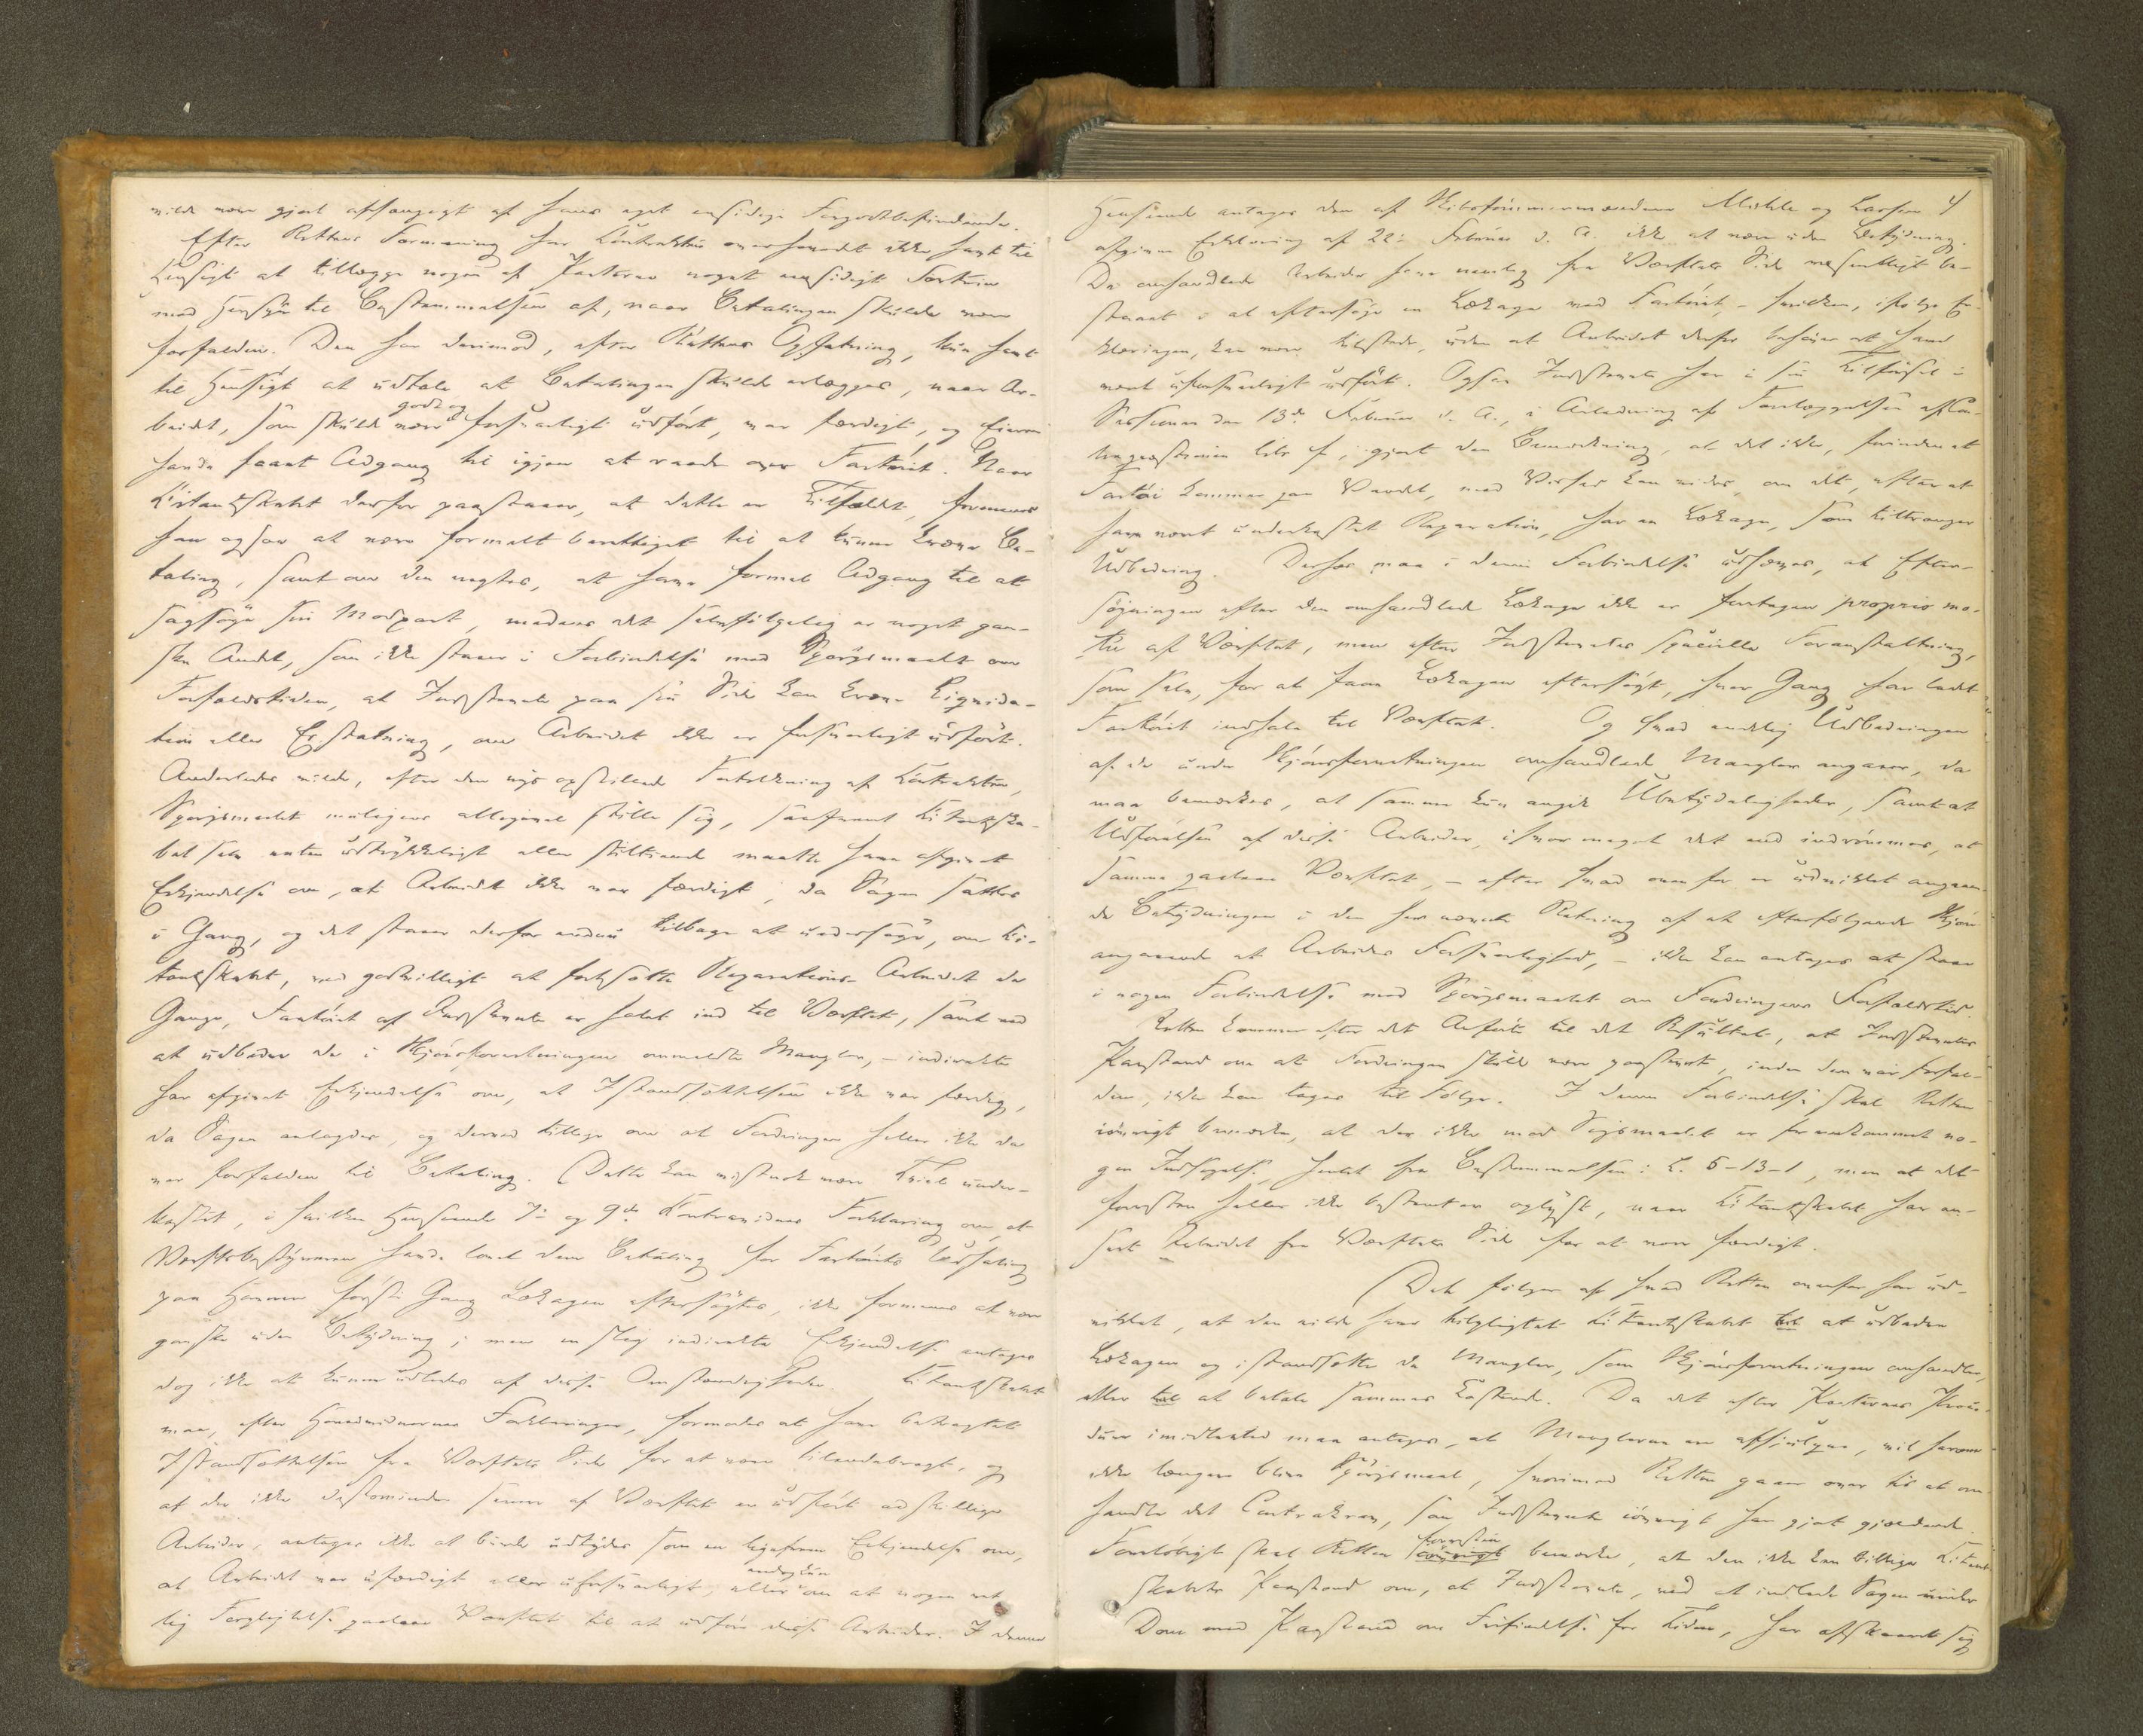 vilde være gjort afhængigt af hans eget ensidige Forgodtbefindende.
Efter Rettens Formening har Kontrakten overhovedet ikke havt til
Hensigt at tillægge nogen af Parterne noget ensidigt Fortrin
med Hensyn til Bestemmelsen af, naar Betalingen skulde være
forfalden. Den har derimod, efter Rettens Opfatning, kun havt
til Hensigt at udtale at Betalingen skulde erlægges, naar Ar-
beidet, som skulde være godt og forsvarligt udført, var færdigt, og Eieren
havde faaet Adgang til igjen at raade over Fartøiet. Naar
Citantskabet derfor paastaaer, at dette er Tilfældet, formenes
han ogsaa at være formelt berettiget til at kunne kræve Be-
taling, samt om den negtes, at have formel Adgang til at
sagsøge sin Modpart, medens det selvfølgelig er noget gan-
ske Andet, som ikke staaer i Forbindelse med Spørgsmaalet om
Forfaldstiden, at Indstevnte paa sin Side kan kræve Liquida-
tion eller Erstatning, om Arbeidet ikke er forsvarligt udført.
Anderledes vilde, efter den nys opstillede Fortolkning af Kontrakten,
Spørgsmaalet muligens alligevel stille sig, saafremt Citantska-
bet selv enten udtrykkeligt eller stiltiende maatte have afgivet
Erkjendelse om, at Arbeidet ikke var færdigt, da Sagen sattes
i Gang, og det staaer derfor endnu tilbage at undersøge, om Ci-
tantskabet, ved godvilligt at fortsætte Reparations-Arbeidet de
Gange, Fartøiet af Indstevnte er halet ind til Værftet, samt ved
at udbedre de i Skjønsforretningen ommeldte Mangler, – indirekte
har afgivet Erkjendelse om, at Istandsættelsen ikke var færdig,
da Sagen anlagdes, og derved tillige om at Fordringen heller ikke da
var forfalden til Betaling. Dette kan vistnok være Tvivl under-
kastet, i hvilken Henseende 7de og 9de Kontravidnes Forklaring om, at
Værftsbestyreren havde lovet dem Betaling for Fartøiets Udhaling
paa Havnen første Gang Lækagen eftersøgtes, ikke formenes at være
ganske uden Betydning; men en slig indirekte Erkjendelse antages
dog ikke at kunne udledes af disse Omstændigheder. Citantskabet
maa, efter Hovedvidnernes Forklaringer, formodes at have betragtet
Istandsættelsen fra Værftets Side for at være tilendebragt, og
at der ikke destomindre senere af Værftet er udført adskillige
Arbeider, antages ikke at burde udtydes som en ligefrem Erkjendelse om,
at Arbeidet var ufærdigt eller uforsvarligt, eller endog kun om at nogen ret-
lig Forpligtelse paalaae Værftet til at udføre disse Arbeider. I denne
Henseende antages den af Skibstømmermændene Michle og Larsen 4
afgivne Erklæring af 22de Februar d. A. ikke at være uden Betydning.
De omhandlede Arbeider have nemlig fra Værftets Side væsentligt be-
staaet i at eftersøge en Lækage ved Fartøiet, – hvilken, ifølge Er-
klæringen, kan være tilstede, uden at Arbeidet derfor behøver at have
været uforsvarligt udført. Ogsaa Indstevnte har i sin Tilførsel i
Sessionen den 13de Februar d. A., i Anledning af Fremlæggelsen af Con-
trageftevnen litr f, gjort den Bemærkning, at det ikke, forinden et
Fartøi kommer paa Vandet, med Vished kan vides, om det, efter at
have været underkastet Reparation, har en Lækage, som tiltrænger
Udbedring. Derhos maa i denne Forbindelse udhæves, at Efter-
søgningen efter den omhandlede Lækage ikke er foretagen proprio mo-
tu af Værftet, men efter Indstevntes specielle Foranstaltning,
som selv, for at faae Lækagen eftersøgt, hver Gang har ladet
Fartøiet indhale til Værftet. Og hvad endelig Udbedringen
af de under Skjønsforretningen omhandlede Mangler angaaer, da
maa bemærkes, at samme kun angik Ubetydeligheder, samt at
Udførelsen af disse Arbeider, ihvormeget det end indrømmes, at
samme paalaae Værftet, – efter hvad ovenfor er udviklet angaaen-
de Betydningen i den her nævnte Retning af et efterfølgende Skjøn
angaaende et Arbeides Forsvarlighed, – ikke kan antages at staae
i nogen Forbindelse med Spørgsmaalet om Fordringens Forfaldstid.
Retten kommer efter det Anførte til det Resultat, at Indstevntes
Paastand om at Fordringen skulde være paastevnt, inden den var forfal-
den, ikke kan tages til Følge. I denne Forbindelse skal Retten
iøvrigt bemærke, at der ikke mod Søgsmaalet er fremkommet no-
gen Indsigelse, hentet fra Bestemmelsen i L. 5-13-1, men at det
forresten heller ikke bestemt er oplyst, naar Citantskabet har an-
seet Arbeidet fra Værftets Side for at være færdigt.
Det følger af hvad Retten ovenfor har ud-
viklet, at den vilde have tilpligtet Citantskabet til at udbedre
Lækagen og istandsætte de Mangler, som Skjønsforretningen omhandler,
eller til at betale sammes Kostende. Da det efter Parternes Proce-
durer imidlertid maa antages, at Manglerne ere afhjulpne, vil herom
ikke længere blive Spørgsmaal, hvorimod Retten gaaer over til at om-
handle det Contrakrav, som Indstevnte iøvrigt har gjort gjældende.
Foreløbigt skal Retten iøvrigt forresten bemærke, at den ikke kan billige Citant-
skabets Paastand om, at Indstevnte, ved at indlade Sagen under
Dom med Paastand om Frifindelse for Tiden, har afskaaret sig